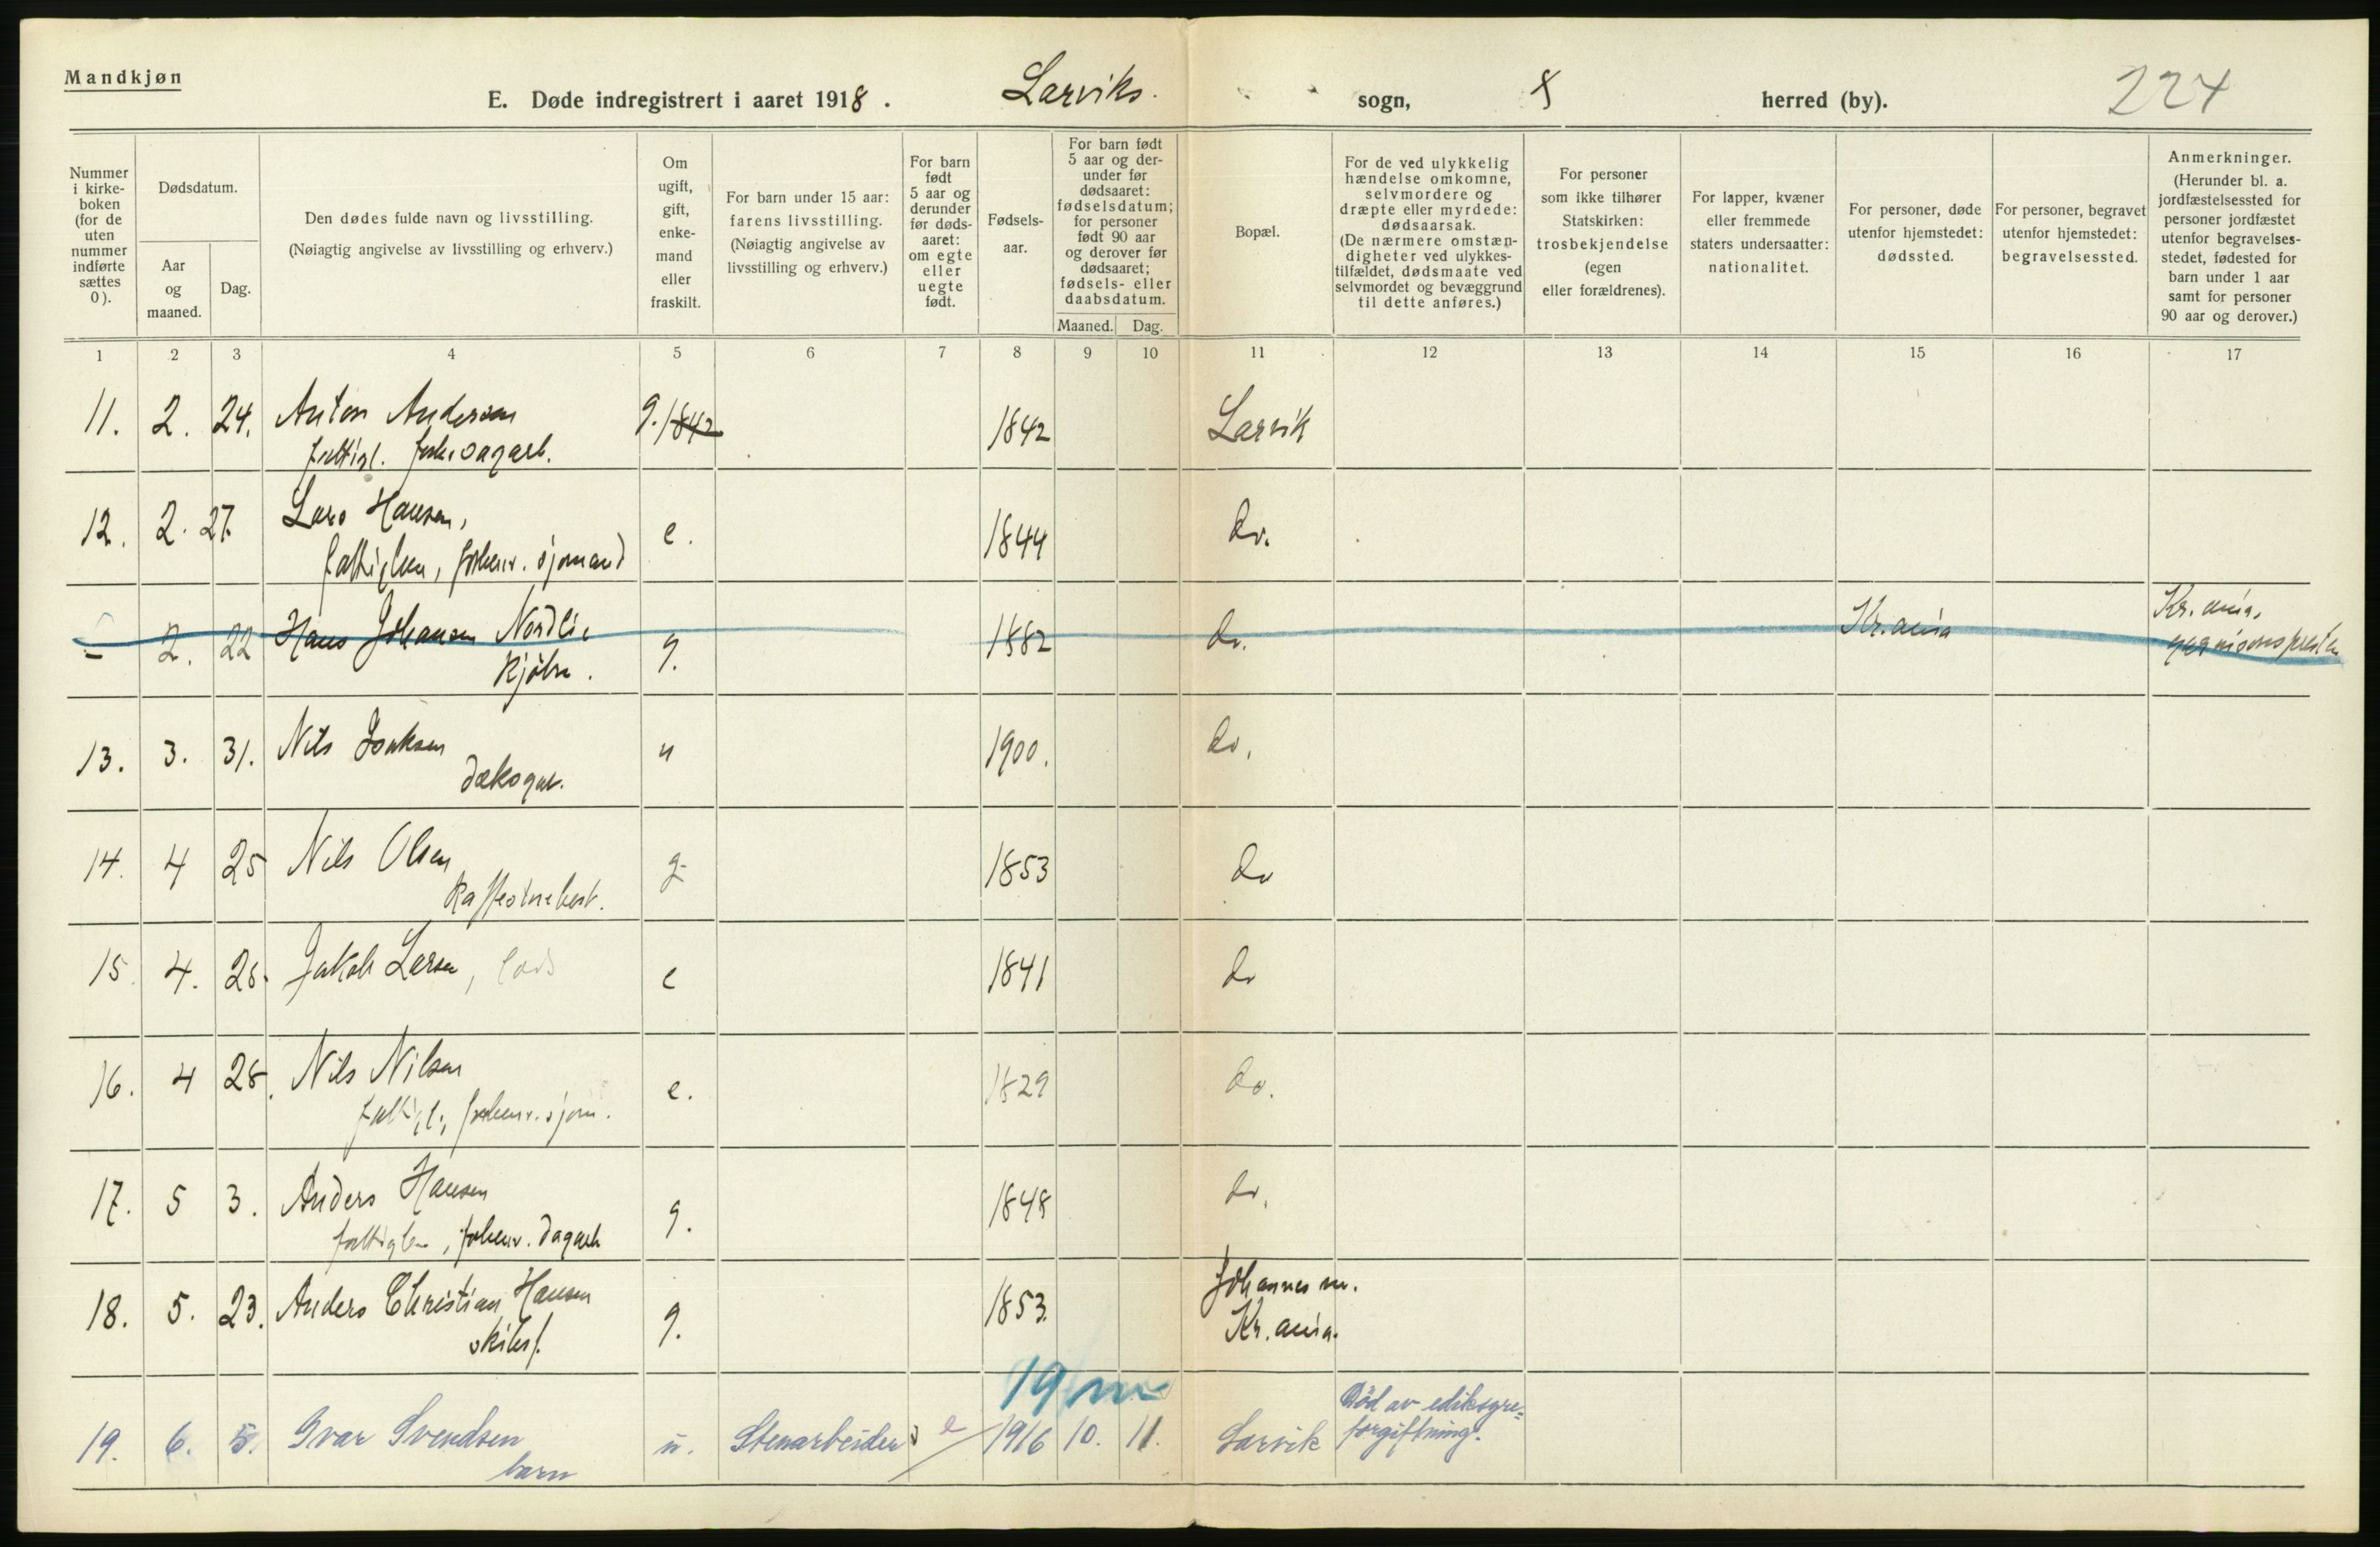 Mandkjøn
E. Døde indregistrert i aaret 1918. Larviks. sogn, herred (by). 224
Nummer i kirke-boken (for de uten nummer indførte sættes 0).
Dødsdatum.
Aar og maaned.
Dag.
Den dødes fulde navn og livsstilling.
(Nøiagtig angivelse av livsstilling og erhverv.)
Om ugift, gift, enke-mand eller fraskilt.
For barn under 15 aar: farens livsstilling.
(Nøiagtig angivelse av livsstilling og erhverv.)
For barn født 5 aar og derunder før døds-aaret: om egte eller uegte født.
Fødsels-aar.
For barn født 5 aar og der-under før dødsaaret: fødselsdatum; for personer født 90 aar og derover før dødsaaret; fødsels- eller daabsdatum.
Maaned. Dag.
Bopæl.
For de ved ulykkelig hændelse omkomne, selvmordere og dræpte eller myrdede: dødsaarsak.
(De nærmere omstæn-digheter ved ulykkes-tilfældet, dødsmaate ved selvmordet og bevæggrund til dette anføres.)
For personer som ikke tilhører Statskirken: trosbekjendelse (egen eller forældrenes).
For lapper, kvæner eller fremmede staters undersaatter: nationalitet.
For personer, døde utenfor hjemstedet: dødssted.
For personer, begravet utenfor hjemstedet: begravelsessted.
Anmerkninger.
(Herunder bl. a. jordfæstelsessted for personer jordfæstet utenfor begravelses-stedet, fødested for barn under 1 aar samt for personer 90 aar og derover.)
1 2 3 4 5 6 7 8 9 10 11 12 13 14 15 16 17
11. 2. 24. Anton Andersen g. 1842 1842 Larvik
fattigl.
12. 2. 27. Lars Hansen, e. 1844 do.
fattiglem, forhenv. sjømand
- 2. 22 Hans Johansen Nordlie g. 1882 do. Kr.ania Kr.ania,
garnisonspresten
13. 3. 31. Nils u 1900. do.
dæksgut.
14. 4 25 Nils Olsen g. 1853 do
Kaffestuebest.
15 4. 28. Jakob Larsen, lods e 1841 do
16. 4 28. Nils Nilsen e. 1829 do.
fattigl., forhenv. sjøm.
17. 5 3. Anders Hansen g. 1848 do.
fattiglem, forhenv. dagarb
18. 5. 23. Anders Christian Hansen g. 1853. Johannes m.
Kr.ania.
19 m
19. 6. 5. Ivar Svendsen u. Stenarbeider e 1916 10. 11. Larvik Död av ediksyre=
barn forgiftning.